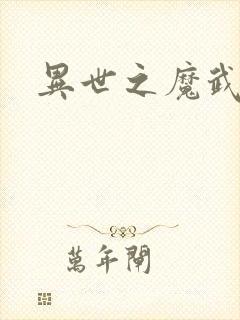 異世之魔武
萬年閘